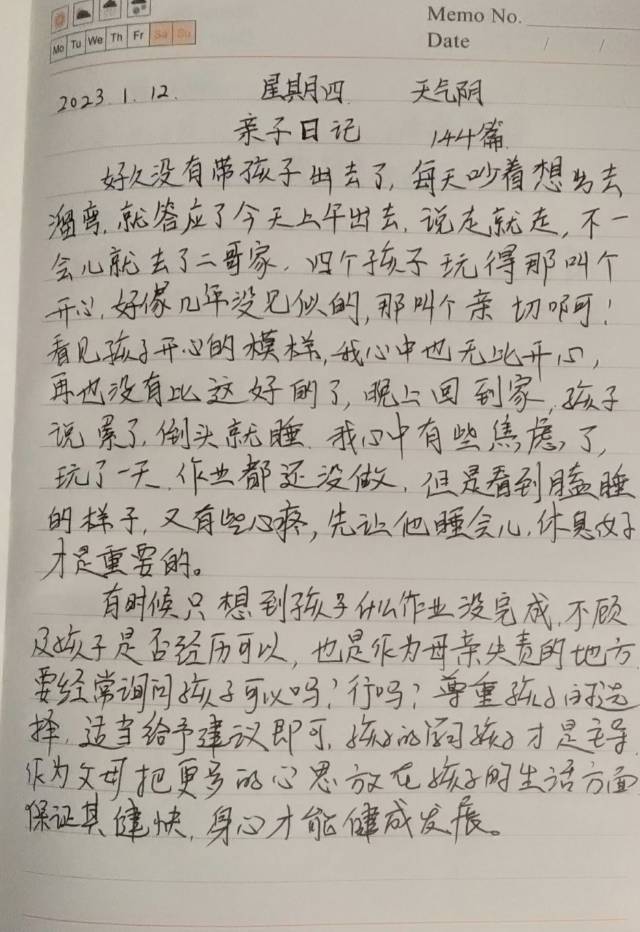 Memo No.
Mo Tu We Th Fr Sa Su
Date / /
2023.1.12. 星期四 天气阴
亲子日记 144篇
好久没有带孩子出去了,每天吵着想出去
溜弯,就答应了今天上午出去,说走就走,不一
会儿就去了二哥家,四个孩子玩得那叫个
开心,好像几年没见似的,那叫个亲切啊!
看见孩子开心的模样,我心中也无比开心,
再也没有比这好的了,晚上回到家,孩子
说累了,倒头就睡.我心中有些焦虑了,
玩了一天,作业都还没做,但是看到瞌睡
的样子,又有些心疼,先让他睡会儿,休息好
才是重要的。
有时候只想到孩子什么作业没完成,不顾
及孩子是否经历可以,也是作为母亲失责的地方
要经常询问孩子可以吗?行吗?尊重孩子的选
择,适当给予建议即可,孩子的学习孩子才是主导
作为父母把更多的心思放在孩子的生活方面
保证其健快,身心才能健成发展。